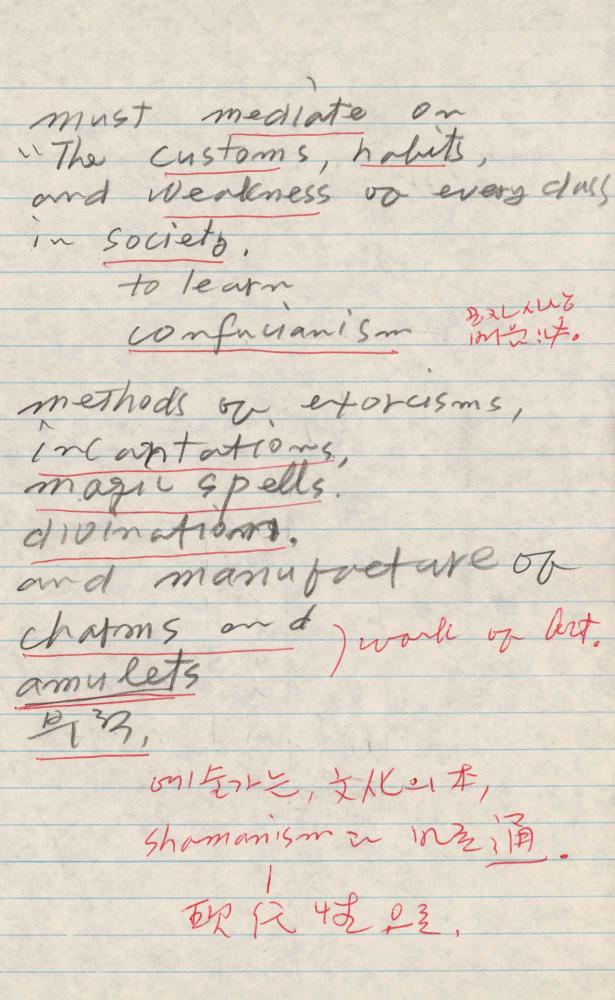 must mediate on
"The customs, habits,
and weakness of every class
in society.
to learn
confucianism
methods of exorcisms,
incaptations,
magic spells.
divinations.
and manufacture of
charms and
amulets
) work of Art.
부적,
예술가는, 文化의 本,
shamanism 과 바로 通.
現代性으로.